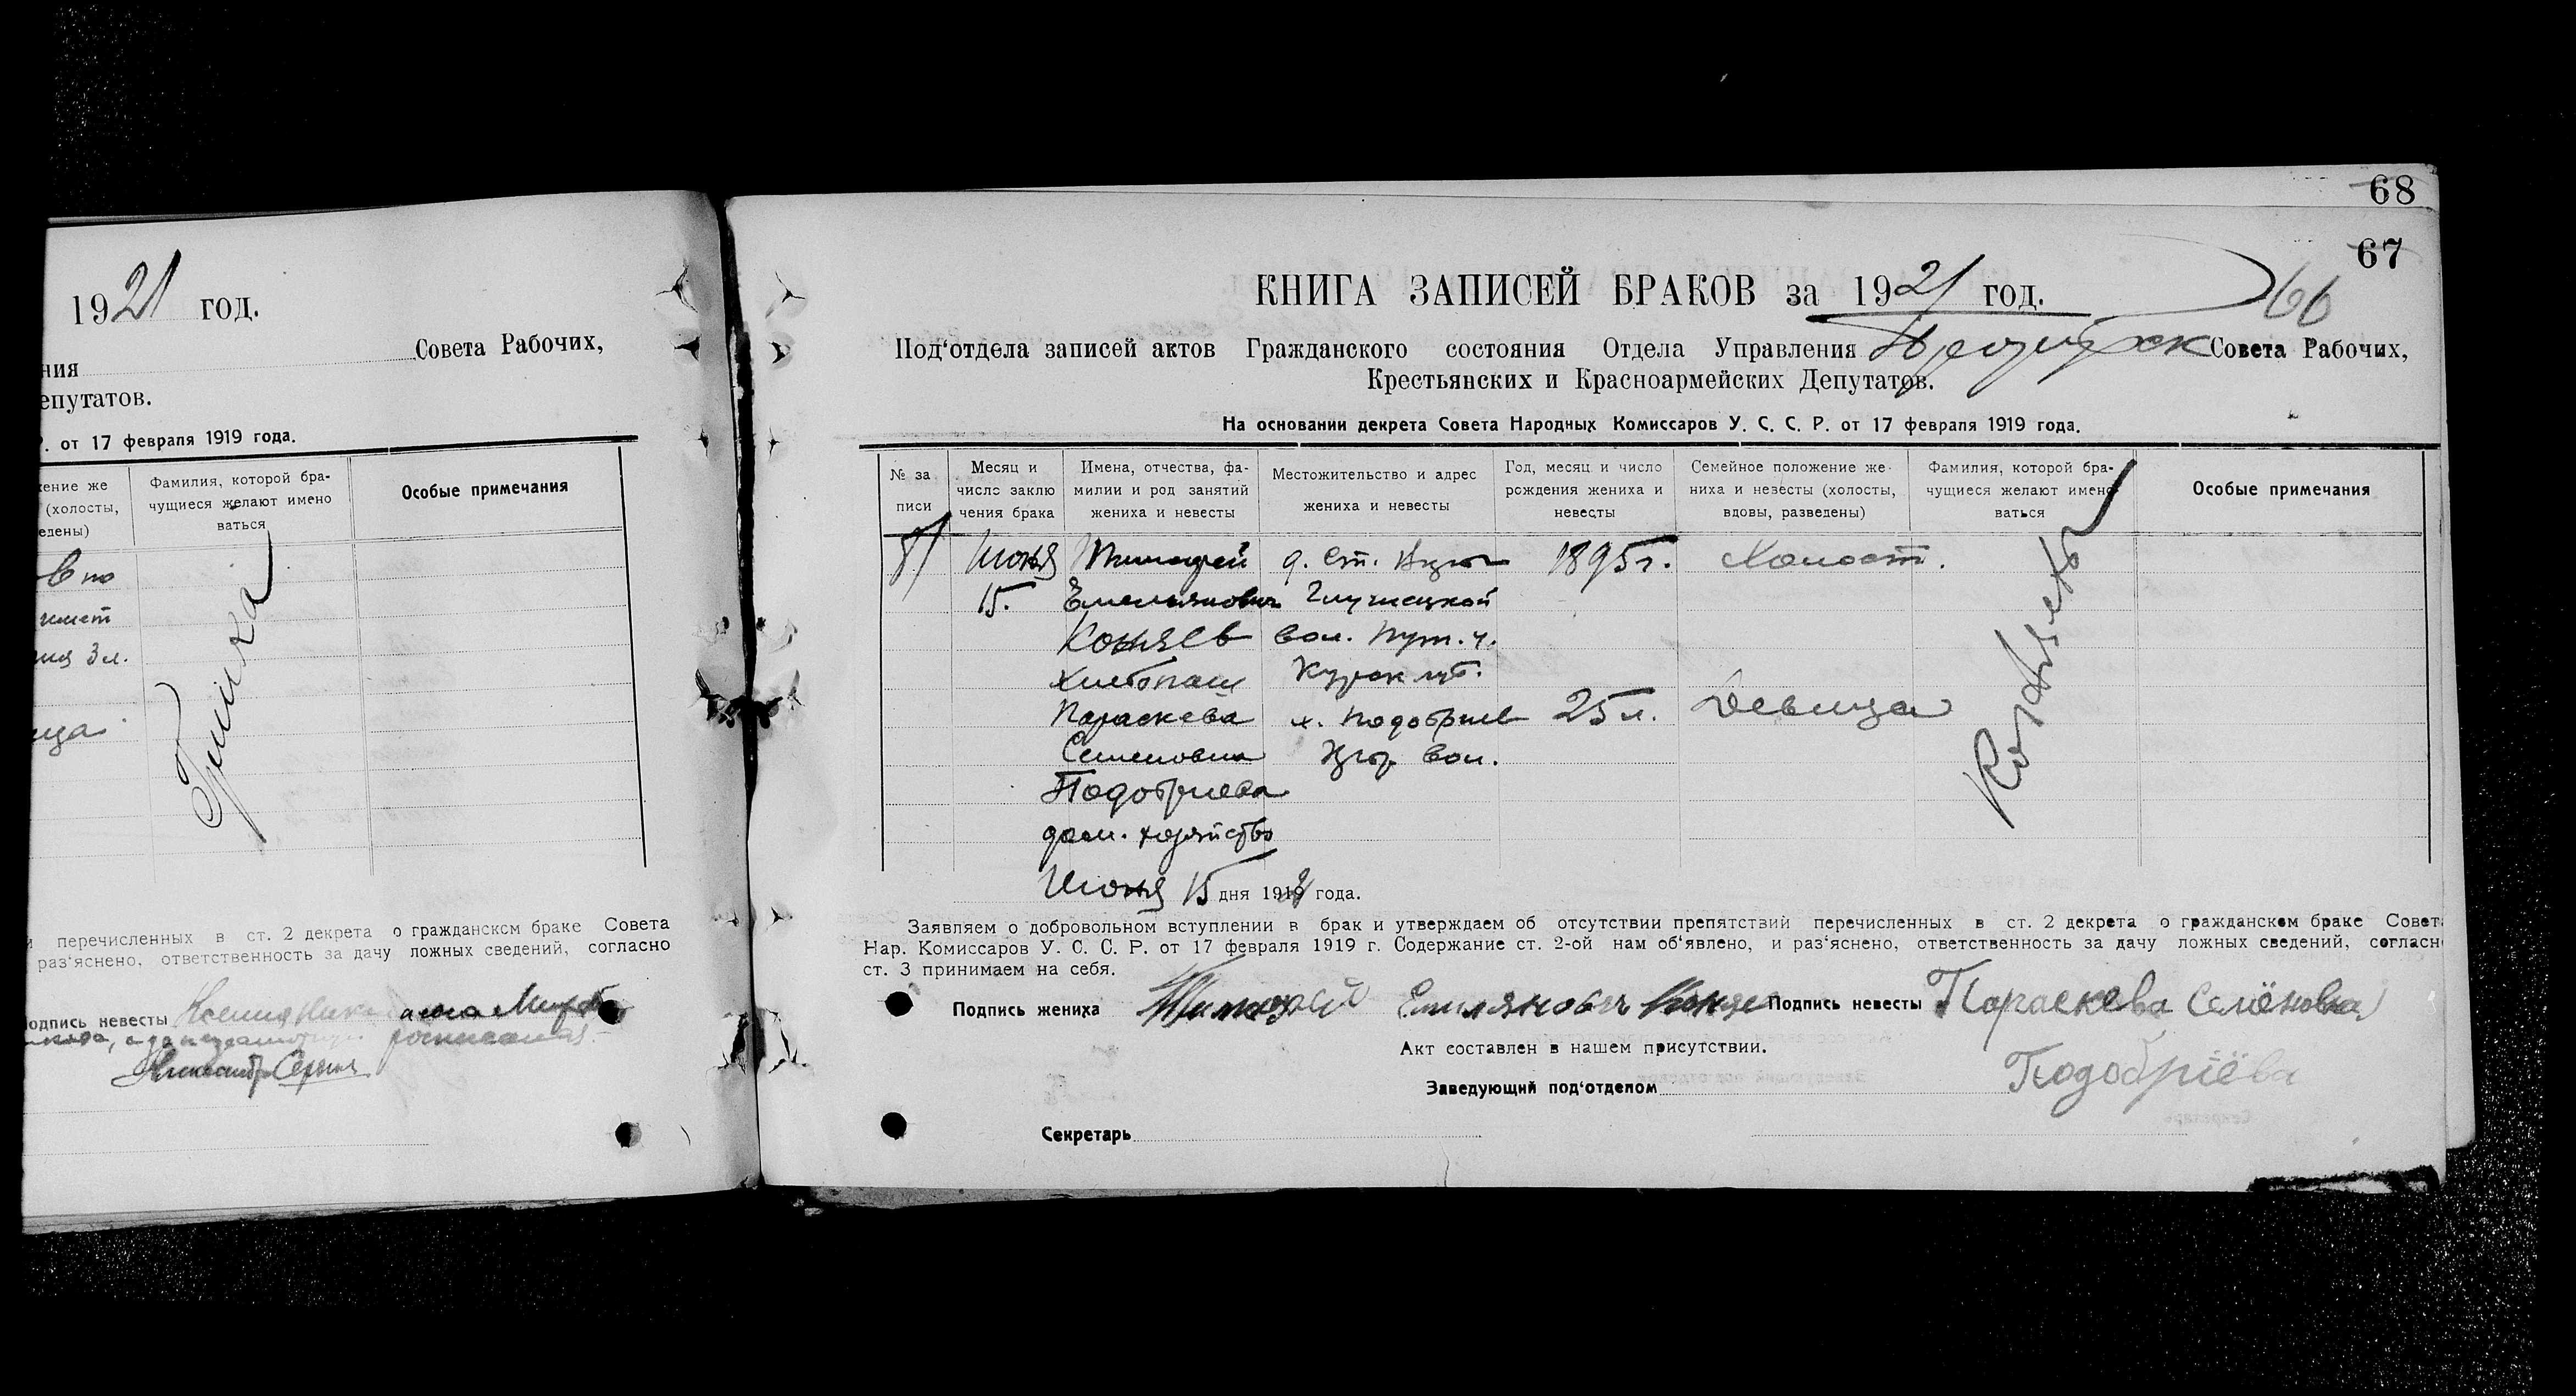 1921 год.
Совета Рабочих,
ния
епутатов.
Р. от 17 февраля 1919 года.
ение же
(холосты,
едены)
Фамилия, которой бра-
чущиеся желают имено
ваться
Особые примечания
ия 3 л.
ица
перечисленных в ст. 2 декрета о гражданском браке Совета
раз'яснено, ответственность за дачу ложных сведений, согласно
одпись невесты Ксения
68
67
66
КНИГА ЗАПИСЕЙ БРАКОВ за 1921 год.
Под'отдела записей актов Гражданского состояния Отдела Управления Совета Рабочих,
Крестьянских и Красноармейских Депутатов.
На основании декрета Совета Народных Комиссаров У. С. С. Р. от 17 февраля 1919 года.
№ за
писи
Месяц и
число заклю
чения брака
Имена, отчества, фа-
милии и род занятий
жениха и невесты
Местожительство и адрес
жениха и невесты
Год, месяц и число
рождения жениха и
невесты
Семейное положение же-
ниха и невесты (холосты,
вдовы, разведены)
Фамилия, которой бра-
чущиеся желают имено
ваться
Особые примечания
Июня Тимофей 1895 г. Холост.
15. Емельянович
Коняев вол. Пут. у.
хлебопаш Курск губ.
Параскева х. Подобриев 25 л. Девица
Семеновна вол.
Подобриева
дом. хозяйство
Июня 15 дня 1921 года.
Заявляем о добровольном вступлении в брак и утверждаем об отсутствии препятствий перечисленных в ст. 2 декрета о гражданском браке Совета
Нар. Комиссаров У. С. С. Р. от 17 февраля 1919 г. Содержание ст. 2-ой нам об'явлено, и раз'яснено, ответственность за дачу ложных сведений, согласн
ст. 3 принимаем на себя.
Подпись жениха Тимофей Емиляновичь Коняев Подпись невесты Параскева Семёновна
Акт составлен в нашем присутствии.
Подобріёва
Заведующий под'отделом
Секретарь